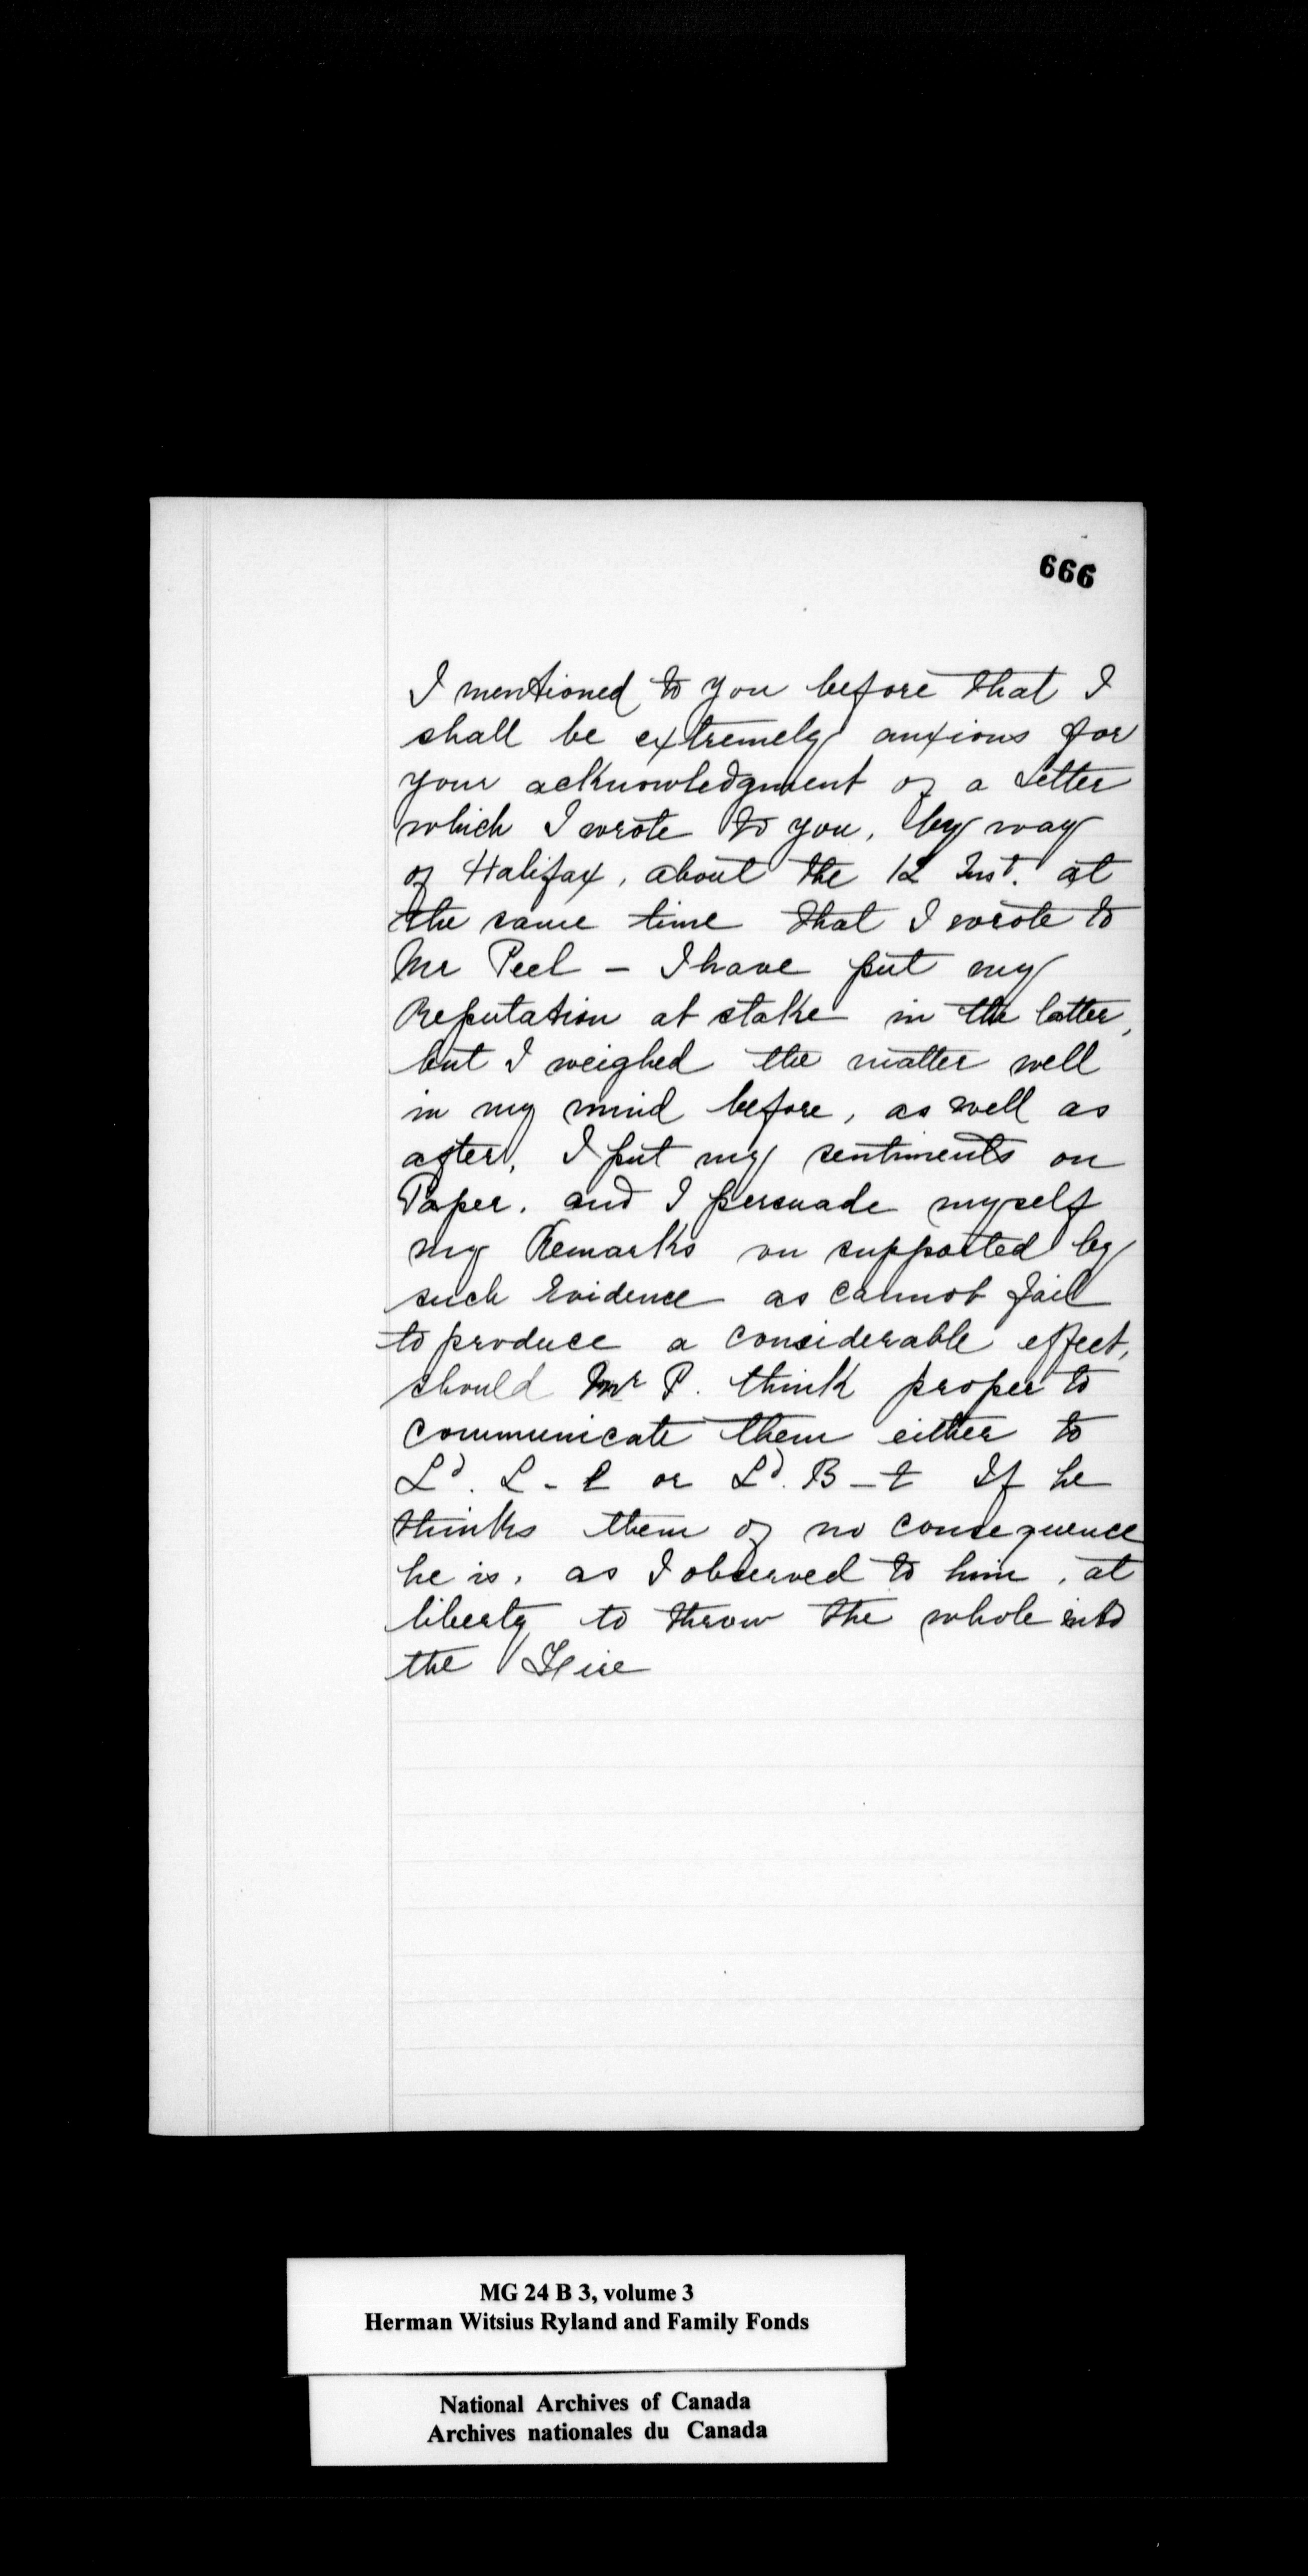 666
I mentioned to you before that I
shall be extremely anxious for
your acknowledgment of a Letter
which I wrote to you, by way
of Halifax, about the 12 Inst. at
the same time that I wrote to
Mr Peel – I have put my
Reputation at stake in the latter,
but I weighed the matter well
in my mind before, as well as
after, I put my sentiments on
Paper. and I persuade myself
my Remarks on supported by
such Evidence as cannot fail
to produce a considerable effect,
should Mr P. think proper to
communicate them either to
Ld. L - l or Ld. B - t If he
thinks them of no consequence
he is, as I observed to him, at
liberty to throw the whole into
the Fire
MG 24 B 3, volume 3
Herman Witsius Ryland and Family Fonds
National Archives of Canada
Archives nationales du Canada